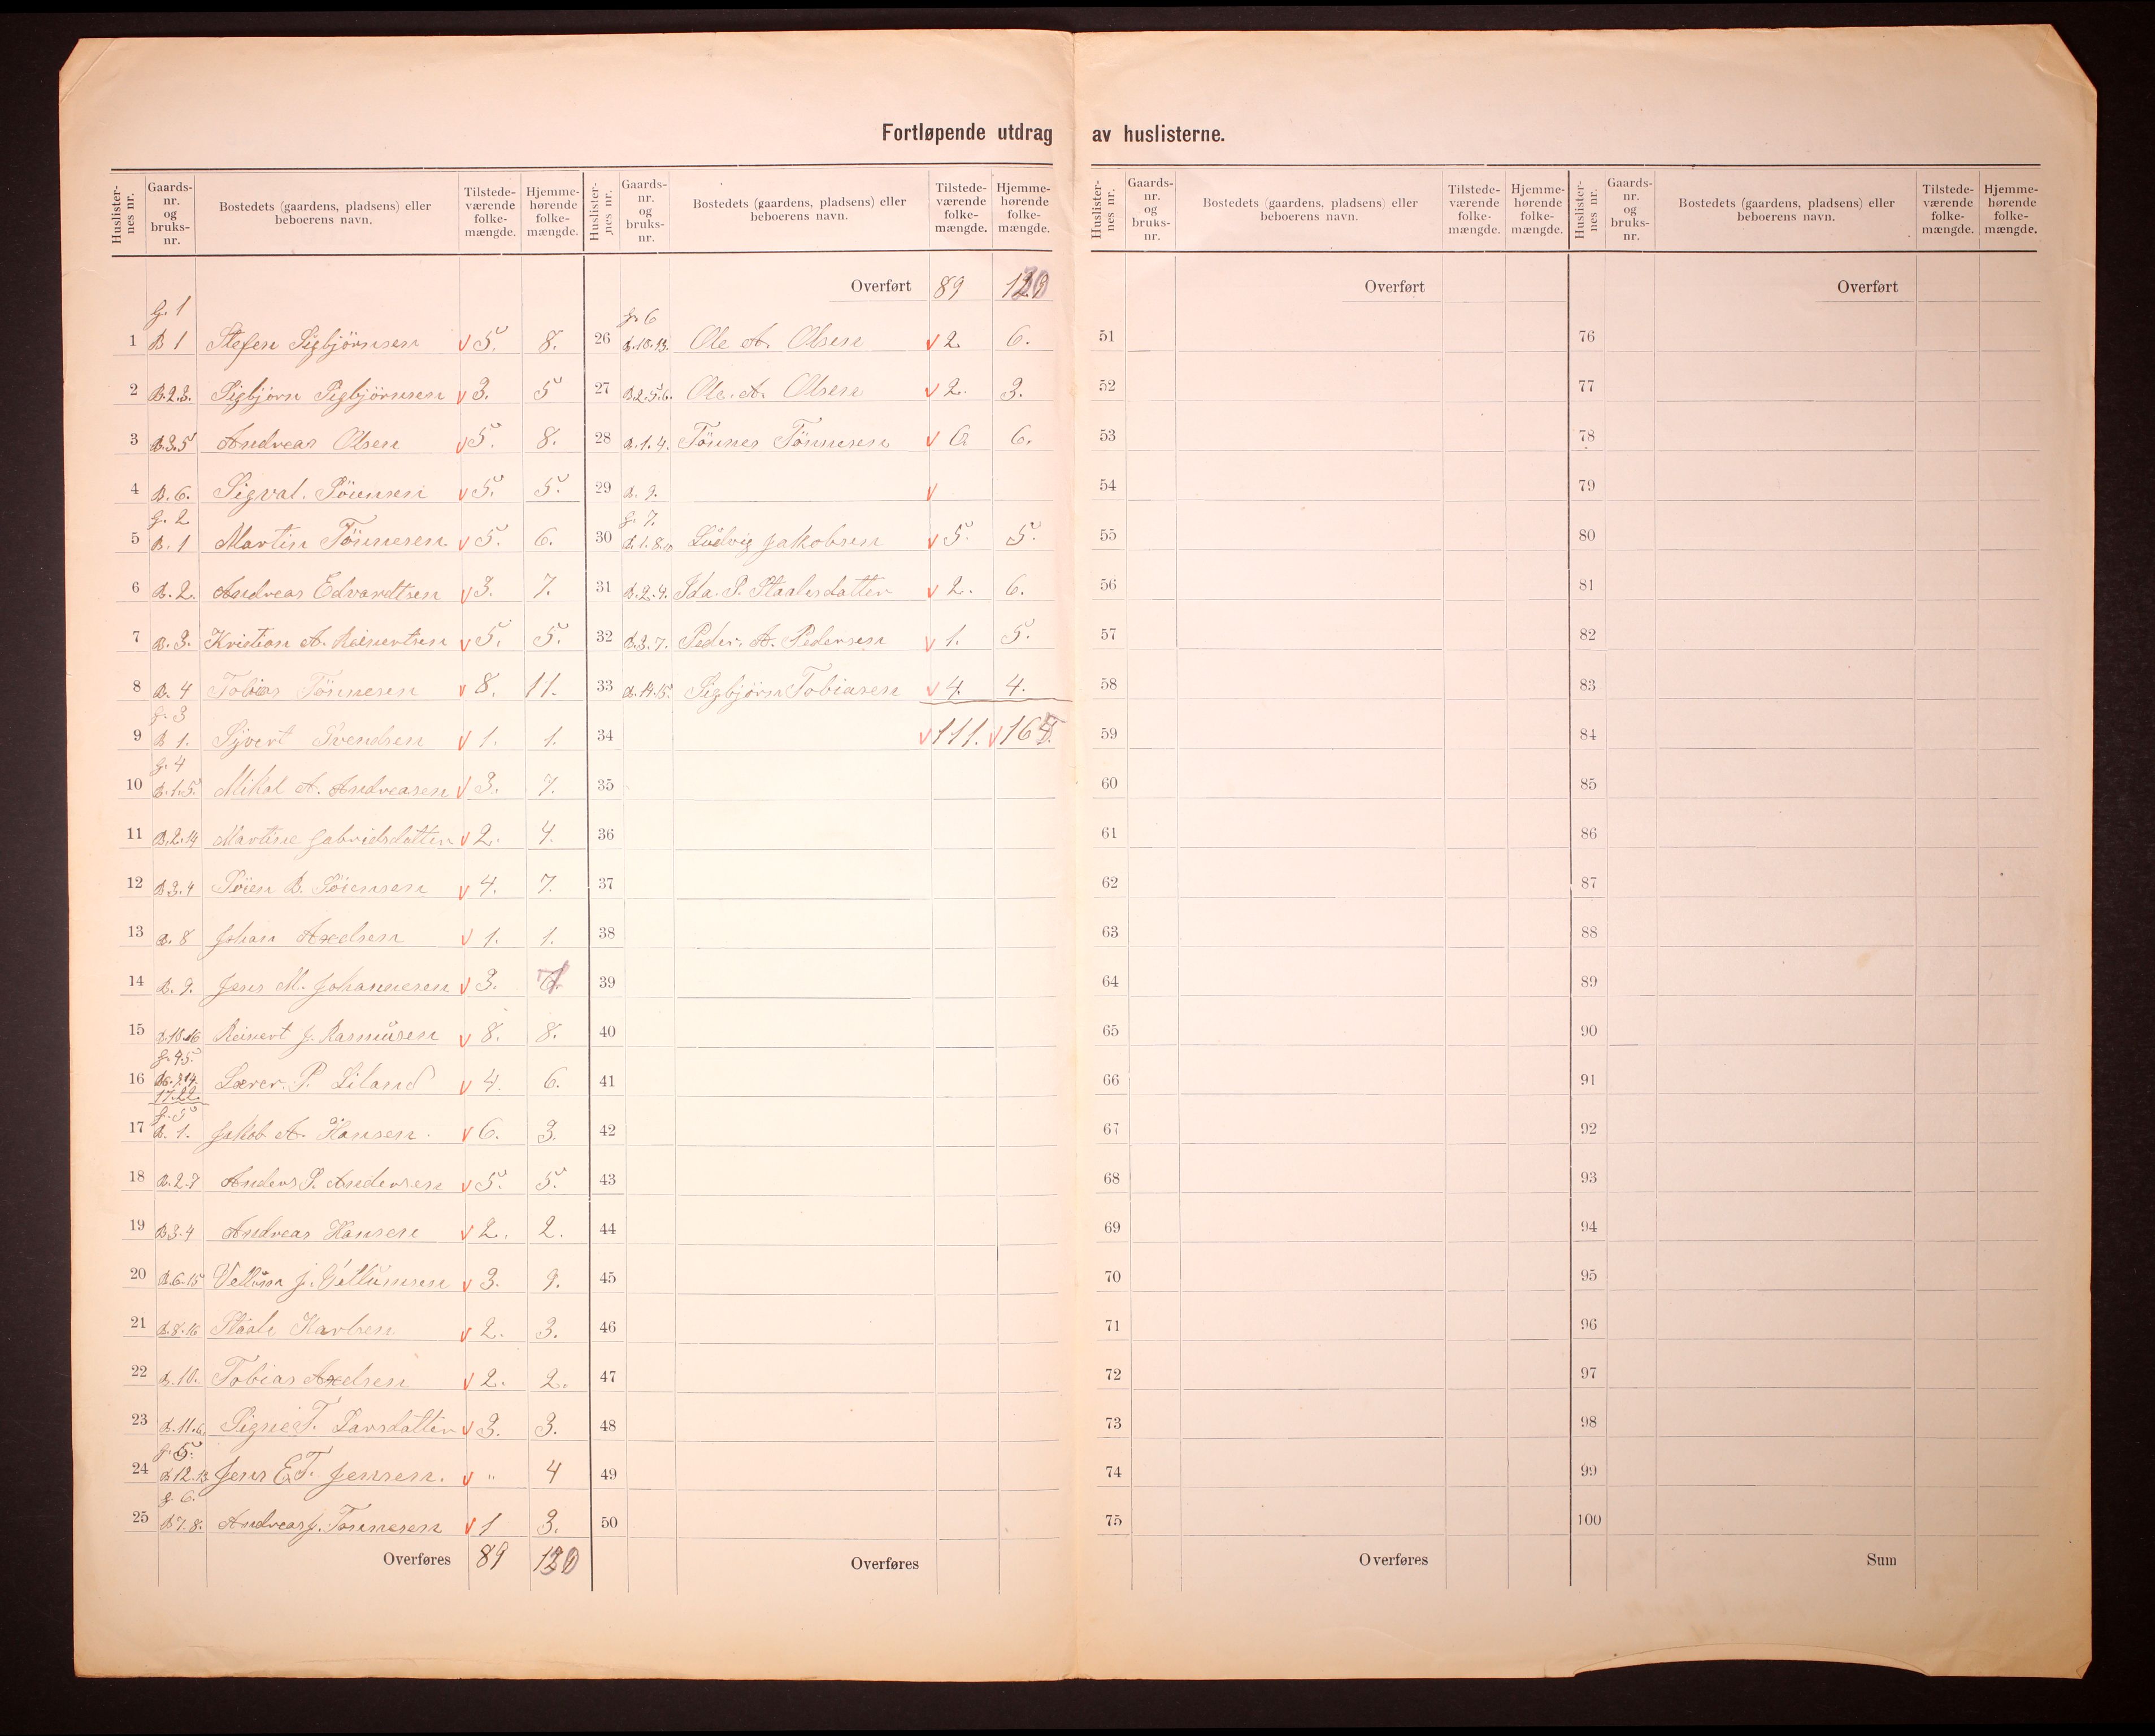 Fortløpende utdrag av huslisterne.
Huslisternes nr. Gaards-nr. og bruks-nr. Bostedets (gaardens, pladsens) eller beboerens navn. Tilstedeværende folkemængde. Hjemmehørende folkemængde.
g. 1
1 B 1 Stefen Sigbjörnsen v 5. 8.
2 B. 2.3. Sigbjörn Sigbjörnsen v 3. 5
3 B. 3.5 Andreas Olsen v 5. 8.
4 B. 6. Sigval. Sörensen v 5. 5.
g. 2
5 B. 1 Martin Tönnesen v 5. 6.
6 B. 2. Andreas Edvardtsen v 3. 7.
7 B. 3. Kristian A. Reinertsen v 5. 5.
8 B. 4 Tobias Tönnesen v 8. 11.
g. 3
9 B 1. Sjvert Svendsen v 1. 1.
g. 4
10 B. 1.5. Mikal A. Andreasen v 3. 7.
11 B. 2.14 Martine Gabrielsdatter v 2. 4.
12 B 3.4 Sören B. Sörensen v 4. 7.
13 B. 8 Johan Axelsen v 1. 1.
14 B. 9. Jens M. Johannesen v 3.
15 B. 10.16 Reinert J. Rasmüsen v 8. 8.
g. 4.5.
16 17.22. Lærer. P. Liland v 4. 6.
g. 5
17 B. 1. Jakob A. Hansen. v 6. 3.
18 B. 2.7 Anders P. Andersen v 5. 5.
19 B 3.4 Andreas Hansen v 2. 2.
20 B. 6.15 Vellüm J. Vellümsen v 3. 9.
21 B. 8.16 Staale Karlsen v 2. 3.
22 B. 10. Tobias Axelsen v 2. 2.
23 B. 11.6. Signe T. Larsdatter v 3. 3.
g. 5.
24 B 12.13 Jens E. T. Jensen. v „ 4
g. 6.
25 B 7.8. Andreas J. Tönnesen v 1 3.
Overføres 89 130
Huslisternes nr. Gaards-nr. og bruks-nr. Bostedets (gaardens, pladsens) eller beboerens navn. Tilstedeværende folkemængde. Hjemmehørende folkemængde.
Overført 89 130
g. 6
26 B. 10.13. Ole A. Olsen v 2. 6.
27 B. 2.5.6. Ole. A. Olsen v 2. 3.
28 B. 1.4. Tönnes Tönnesen v 6 6.
29 B. 9. v
g. 7.
30 B. 1.8.10 Lüdvig Jakobsen v 5. 5.
31 B. 2.9. Ida. P. Staalesdatter v 2. 6.
32 B. 3.7. Peder. A. Pedersen v 1. 5.
33 B. 14.15. Sigbjörn Tobiasen v 4. 4.
34 v 111. v 165.
35
36
37
38
39
40
41
42
43
44
45
46
47
48
49
50
Overføres
Huslisternes nr. Gaards-nr. og bruks-nr. Bostedets (gaardens, pladsens) eller beboerens navn. Tilstedeværende folkemængde. Hjemmehørende folkemængde.
Overført
51
52
53
54
55
56
57
58
59
60
61
62
63
64
65
66
67
68
69
70
71
72
73
74
75
Overføres
Huslisternes nr. Gaards-nr. og bruks-nr. Bostedets (gaardens, pladsens) eller beboerens navn. Tilstedeværende folkemængde. Hjemmehørende folkemængde.
Overført
76
77
78
79
80
81
82
83
84
85
86
87
88
89
90
91
92
93
94
95
96
97
98
99
100
Sum